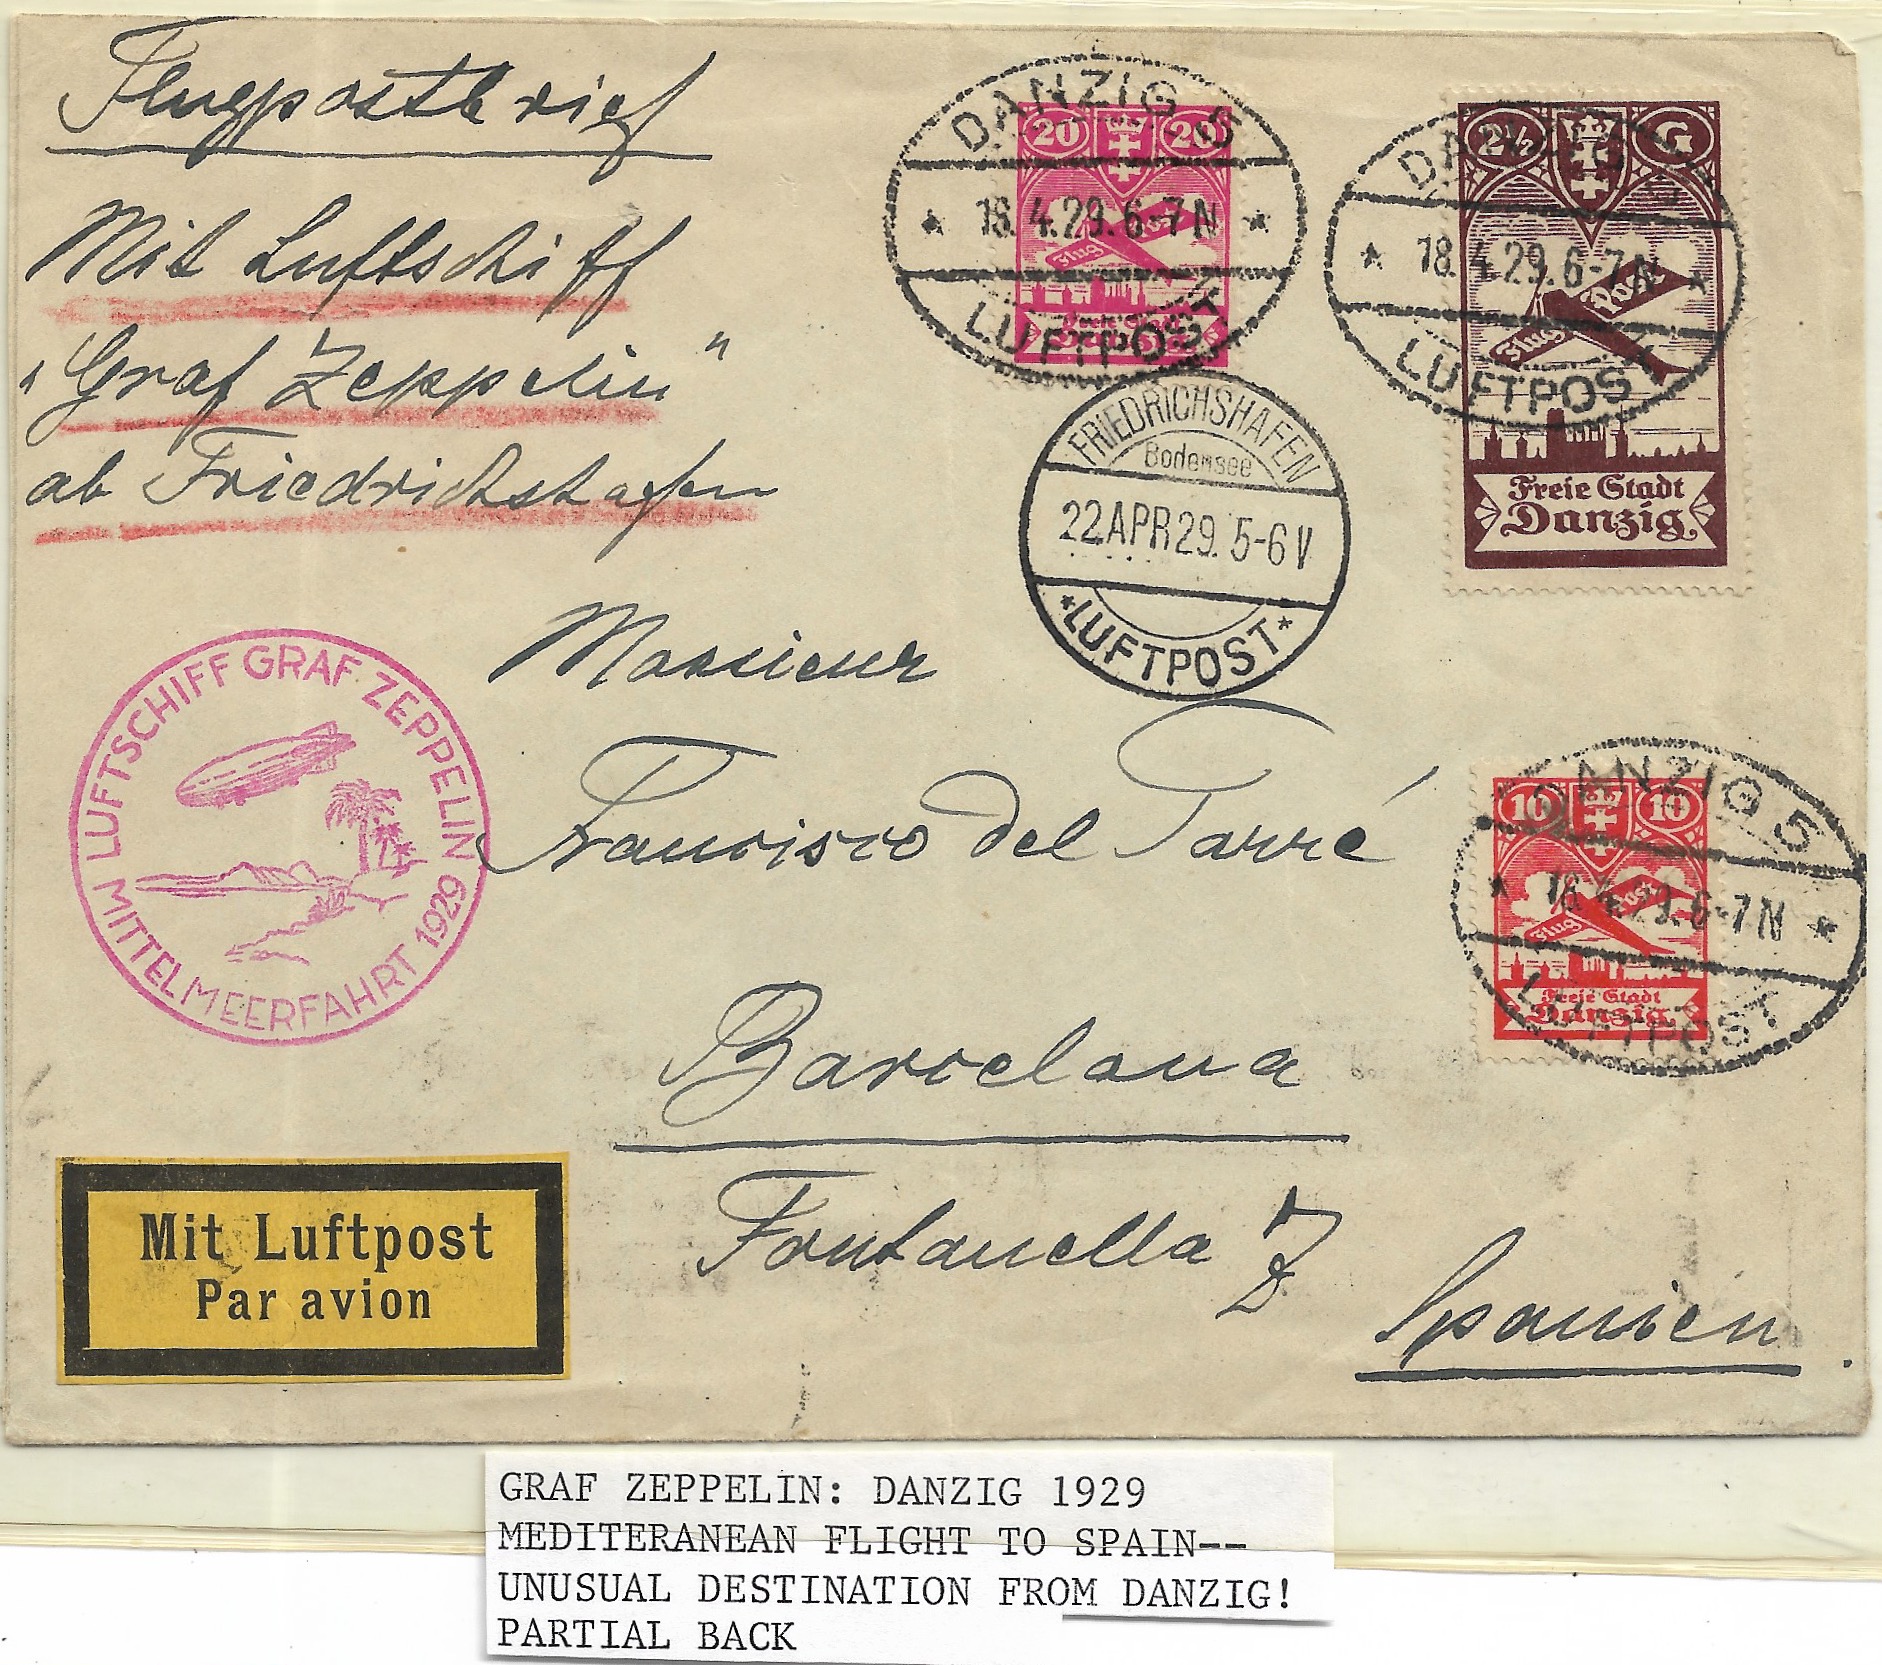 Flugpostbrief
Mit Luftschiff
"Graf Zeppelin"
ab Friedrichshafen
DANZIG 5
* 18.4.29.6-7N *
LUFTPOST
20 20
Flug Post
Freie Stadt
Danzig
DANZIG 5
* 18.4.29.6-7N *
LUFTPOST
2½ G
Flug Post
Freie Stadt
Danzig
FRIEDRICHSHAFEN
Bodensee
22APR29.5-6V
*LUFTPOST*
LUFTSCHIFF GRAF ZEPPELIN
MITTELMEERFAHRT 1929
Monsieur
Francisco del Tarré
DANZIG 5
* 18.4.29.6-7N *
LUFTPOST
10 10
Flug Post
Freie Stadt
Danzig
Barcelona
Fontanella
Spanien.
Mit Luftpost
Par avion
GRAF ZEPPELIN: DANZIG 1929
MEDITERANEAN FLIGHT TO SPAIN--
UNUSUAL DESTINATION FROM DANZIG!
PARTIAL BACK